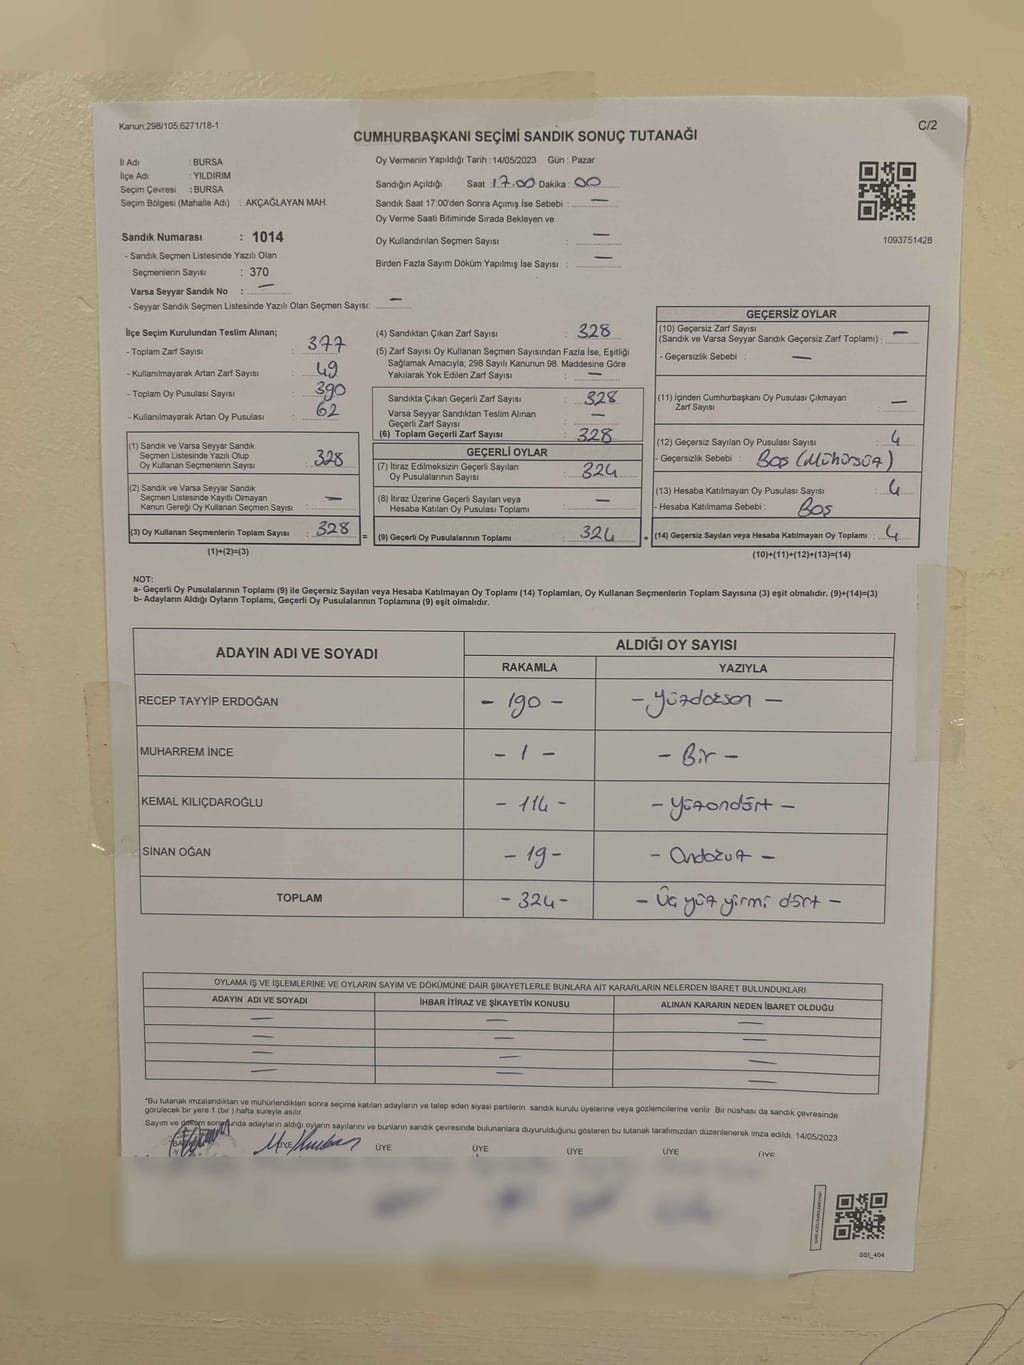 Kanun;298/105;6271/18-1
C/2
CUMHURBAŞKANI SEÇİMİ SANDIK SONUÇ TUTANAĞI
İl Adı : BURSA
İlçe Adı : YILDIRIM
Seçim Çevresi : BURSA
Seçim Bölgesi (Mahalle Adı) : AKÇAĞLAYAN MAH.
Sandık Numarası : 1014
- Sandık Seçmen Listesinde Yazılı Olan
Seçmenlerin Sayısı : 370
Varsa Seyyar Sandık No : —
- Seyyar Sandık Seçmen Listesinde Yazılı Olan Seçmen Sayısı: —
Oy Vermenin Yapıldığı Tarih : 14/05/2023 Gün : Pazar
Sandığın Açıldığı Saat : 17.00 Dakika : 00
Sandık Saat 17:00'den Sonra Açımış İse Sebebi : —
Oy Verme Saati Bitiminde Sırada Bekleyen ve
Oy Kullandırılan Seçmen Sayısı : —
Birden Fazla Sayım Döküm Yapılmış İse Sayısı : —
1093751428
İlçe Seçim Kurulundan Teslim Alınan;
- Toplam Zarf Sayısı : 377
- Kullanılmayarak Artan Zarf Sayısı : 49
- Toplam Oy Pusulası Sayısı : 390
- Kullanılmayarak Artan Oy Pusulası : 62
(1) Sandık ve Varsa Seyyar Sandık
Seçmen Listesinde Yazılı Olup
Oy Kullanan Seçmenlerin Sayısı : 328
(2) Sandık ve Varsa Seyyar Sandık
Seçmen Listesinde Kayıtlı Olmayan
Kanun Gereği Oy Kullanan Seçmen Sayısı : —
(3) Oy Kullanan Seçmenlerin Toplam Sayısı : 328 =
(1)+(2)=(3)
(4) Sandıktan Çıkan Zarf Sayısı : 328
(5) Zarf Sayısı Oy Kullanan Seçmen Sayısından Fazla İse, Eşitliği
Sağlamak Amacıyla; 298 Sayılı Kanunun 98. Maddesine Göre
Yakılarak Yok Edilen Zarf Sayısı : —
Sandıkta Çıkan Geçerli Zarf Sayısı : 328
Varsa Seyyar Sandıktan Teslim Alınan
Geçerli Zarf Sayısı : —
(6) Toplam Geçerli Zarf Sayısı : 328
GEÇERLİ OYLAR
(7) İtiraz Edilmeksizin Geçerli Sayılan
Oy Pusulalarının Sayısı : 324
(8) İtiraz Üzerine Geçerli Sayılan veya
Hesaba Katılan Oy Pusulası Toplamı : —
(9) Geçerli Oy Pusulalarının Toplamı : 324 +
GEÇERSİZ OYLAR
(10) Geçersiz Zarf Sayısı
(Sandık ve Varsa Seyyar Sandık Geçersiz Zarf Toplamı) : —
- Geçersizlik Sebebi : —
(11) İçinden Cumhurbaşkanı Oy Pusulası Çıkmayan
Zarf Sayısı : —
(12) Geçersiz Sayılan Oy Pusulası Sayısı : 4
- Geçersizlik Sebebi : Boş (Mühürsüz)
(13) Hesaba Katılmayan Oy Pusulası Sayısı : 4
- Hesaba Katılmama Sebebi : Boş
(14) Geçersiz Sayılan veya Hesaba Katılmayan Oy Toplamı : 4
(10)+(11)+(12)+(13)=(14)
NOT:
a- Geçerli Oy Pusulalarının Toplamı (9) ile Geçersiz Sayılan veya Hesaba Katılmayan Oy Toplamı (14) Toplamları, Oy Kullanan Seçmenlerin Toplam Sayısına (3) eşit olmalıdır. (9)+(14)=(3)
b- Adayların Aldığı Oyların Toplamı, Geçerli Oy Pusulalarının Toplamına (9) eşit olmalıdır.
ADAYIN ADI VE SOYADI
ALDIĞI OY SAYISI
RAKAMLA YAZIYLA
RECEP TAYYİP ERDOĞAN - 190 - - Yüzdoksan -
MUHARREM İNCE - 1 - - Bir -
KEMAL KILIÇDAROĞLU - 114 - - Yüzondört -
SİNAN OĞAN - 19 - - Ondokuz -
TOPLAM - 324 - - Üç yüz yirmi dört -
OYLAMA İŞ VE İŞLEMLERİNE VE OYLARIN SAYIM VE DÖKÜMÜNE DAİR ŞİKAYETLERLE BUNLARA AİT KARARLARIN NELERDEN İBARET BULUNDUKLARI
ADAYIN ADI VE SOYADI İHBAR İTİRAZ VE ŞİKAYETİN KONUSU ALINAN KARARIN NEDEN İBARET OLDUĞU
— — —
— — —
— — —
— — —
*Bu tutanak imzalandıktan ve mühürlendikten sonra seçime katılan adayların ve talep eden siyasi partilerin sandık kurulu üyelerine veya gözlemcilerine verilir. Bir nüshası da sandık çevresinde
görülecek bir yere 1 (bir ) hafta süreyle asılır.
Sayım ve döküm sonunda adayların aldığı oyların sayılarını ve bunların sandık çevresinde bulunanlara duyurulduğunu gösteren bu tutanak tarafımızdan düzenlenerek imza edildi. 14/05/2023
ÜYE ÜYE ÜYE ÜYE ÜYE ÜYE
SSI_404